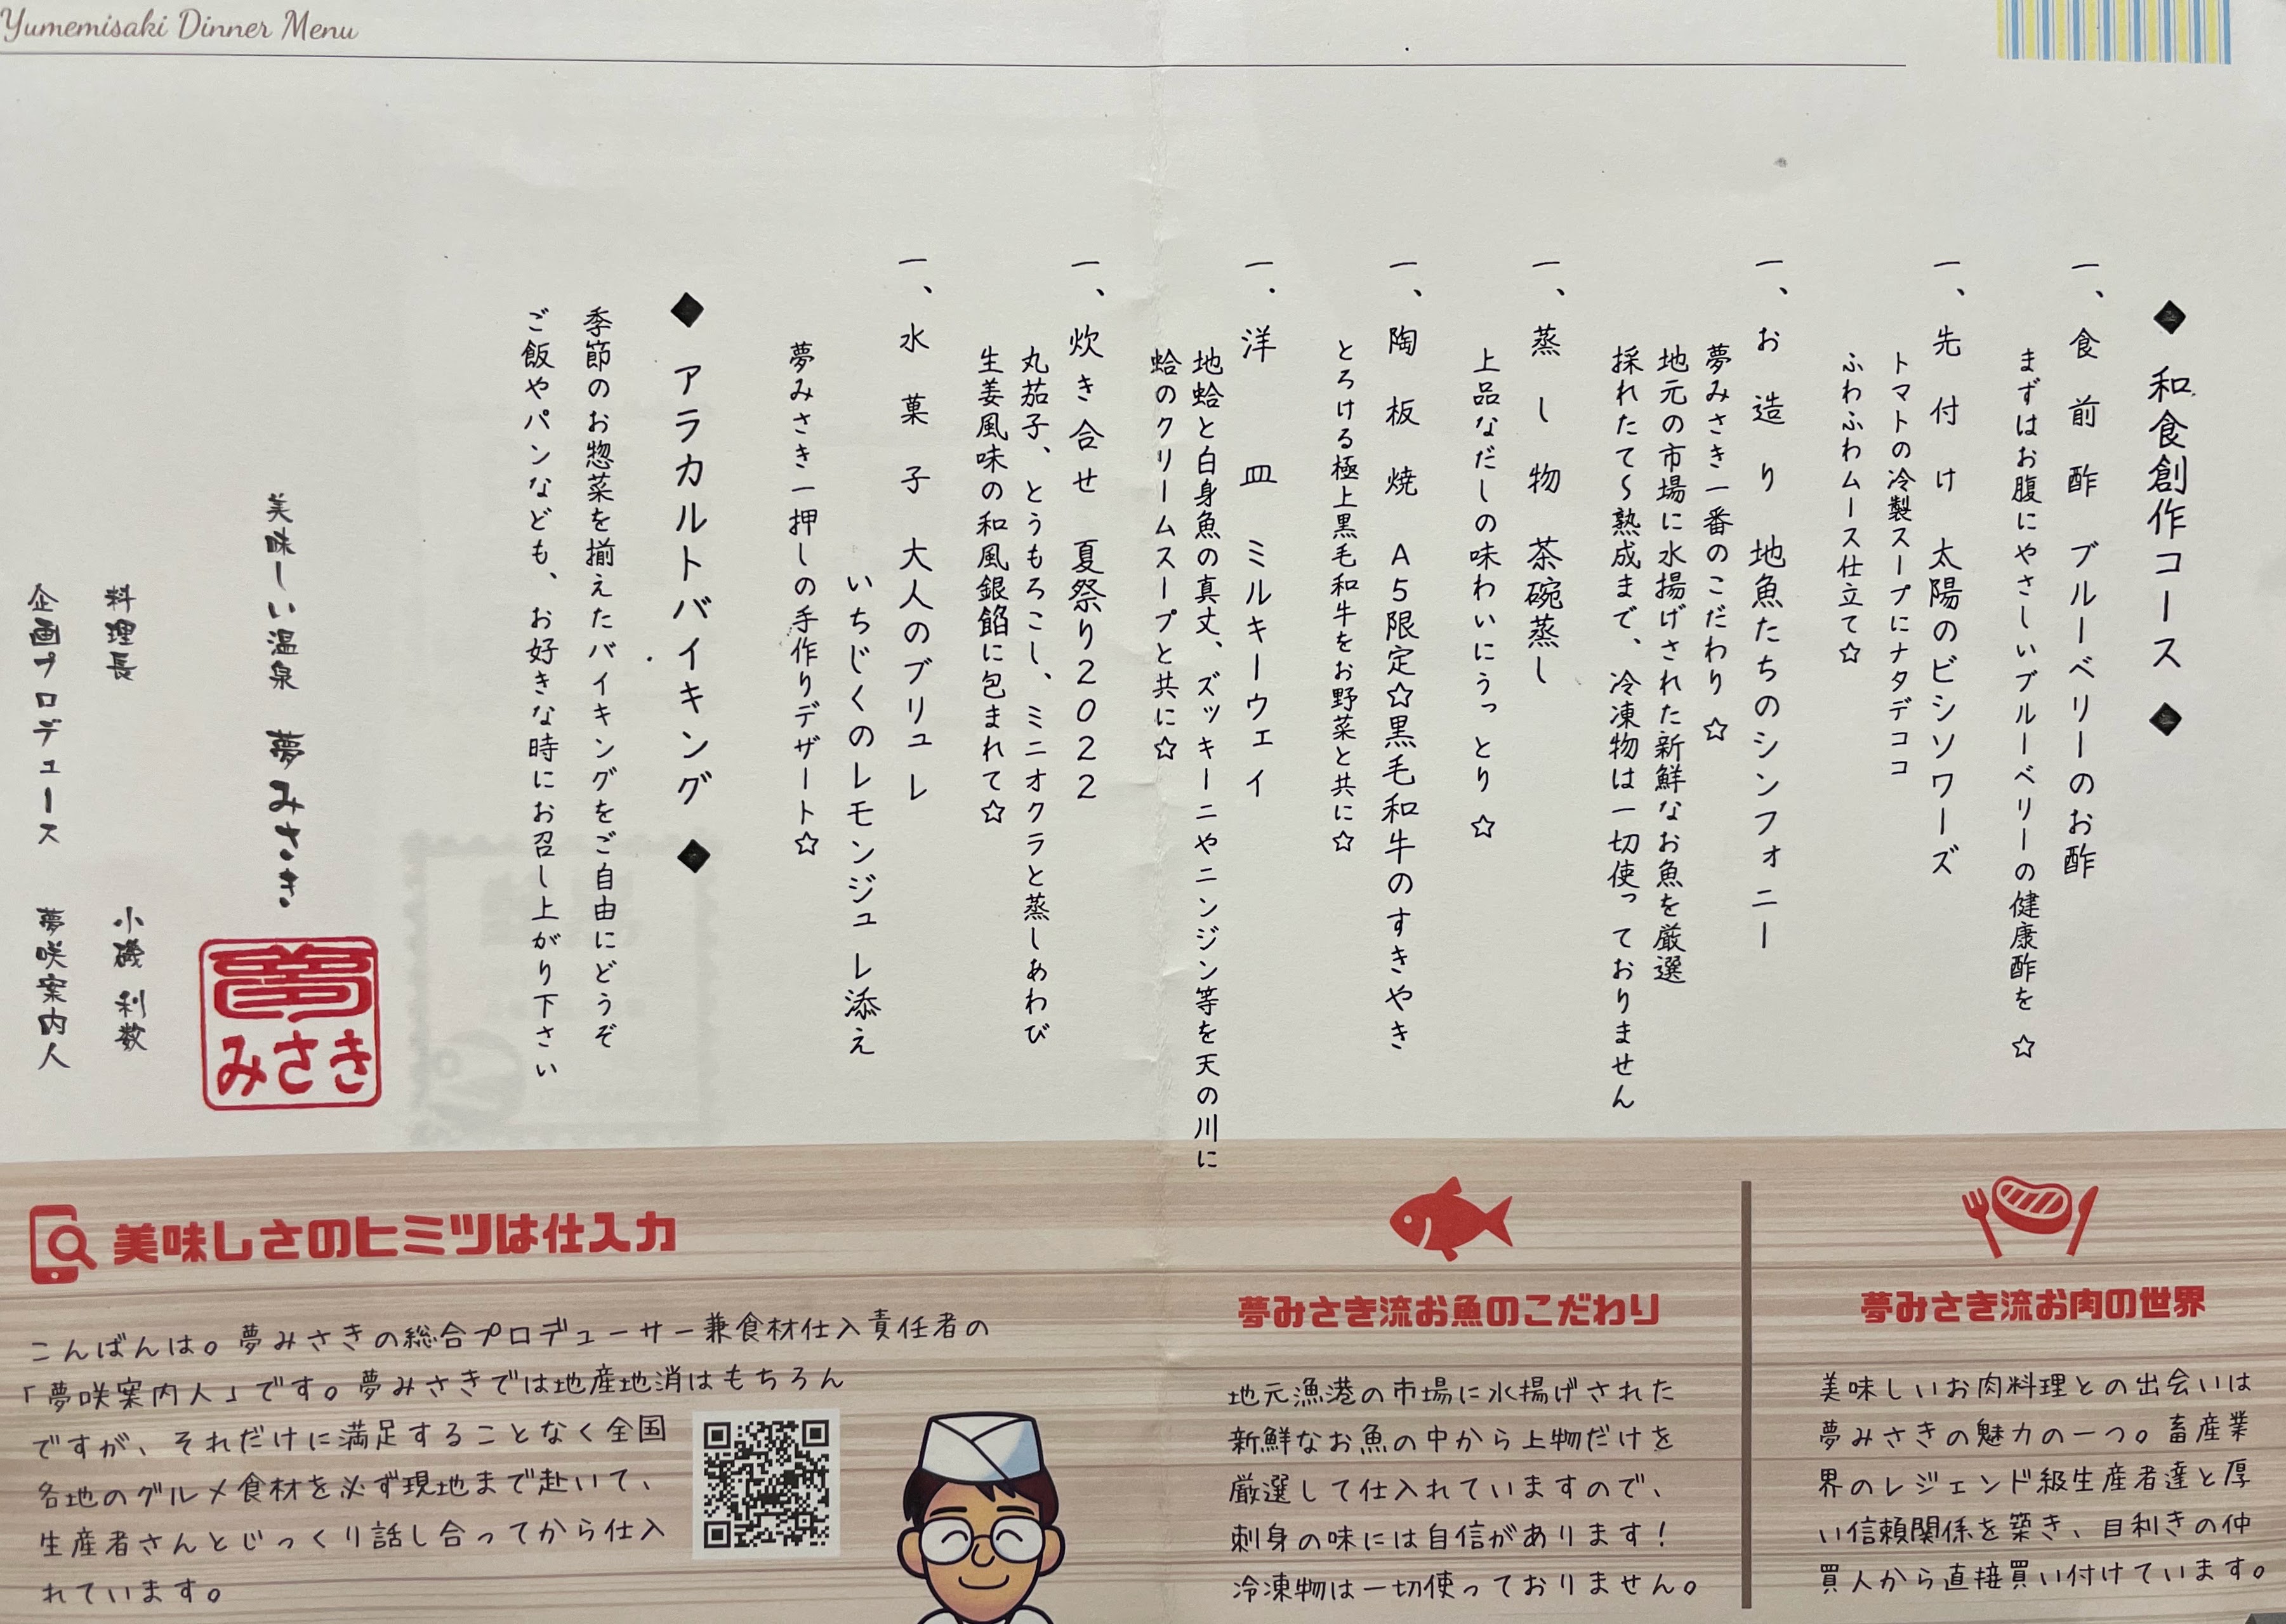 Yumemisaki Dinner Menu
◆ 和食創作コース ◆
一、食前酢 ブルーベリーのお酢
まずはお腹にやさしいブルーベリーの健康酢を☆
一、先付け 太陽のビシソワーズ
トマトの冷製スープにナタデココ
ふわふわムース仕立て☆
一、お造り 地魚たちのシンフォニー
夢みさき一番のこだわり☆
地元の市場に水揚げされた新鮮なお魚を厳選
採れたて～熟成まで、冷凍物は一切使っておりません
一、蒸し物 茶碗蒸し
上品なだしの味わいにうっとり☆
一、陶板焼 A5限定☆黒毛和牛のすきやき
とろける極上黒毛和牛をお野菜と共に☆
一．洋皿 ミルキーウェイ
地蛤と白身魚の真丈、ズッキーニやニンジン等を天の川に
蛤のクリームスープと共に☆
一、炊き合せ 夏祭り2022
丸茄子、とうもろこし、ミニオクラと蒸しあわび
生姜風味の和風銀餡に包まれて☆
一、水菓子 大人のブリュレ
いちじくのレモンジュレ添え
夢みさき一押しの手作りデザート☆
◆ アラカルトバイキング ◆
季節のお惣菜を揃えたバイキングをご自由にどうぞ
ご飯やパンなども、お好きな時にお召し上がり下さい
美味しい温泉 夢みさき
夢
みさき
料理長 小磯 利数
企画プロデュース 夢咲案内人
美味しさのヒミツは仕入力
こんばんは。夢みさきの総合プロデューサー兼食材仕入責任者の
「夢咲案内人」です。夢みさきでは地産地消はもちろん
ですが、それだけに満足することなく全国
各地のグルメ食材を必ず現地まで赴いて、
生産者さんとじっくり話し合ってから仕入
れています。
夢みさき流お魚のこだわり
地元漁港の市場に水揚げされた
新鮮なお魚の中から上物だけを
厳選して仕入れていますので、
刺身の味には自信があります！
冷凍物は一切使っておりません。
夢みさき流お肉の世界
美味しいお肉料理との出会いは
夢みさきの魅力の一つ。畜産業
界のレジェンド級生産者達と厚
い信頼関係を築き、目利きの仲
買人から直接買い付けています。